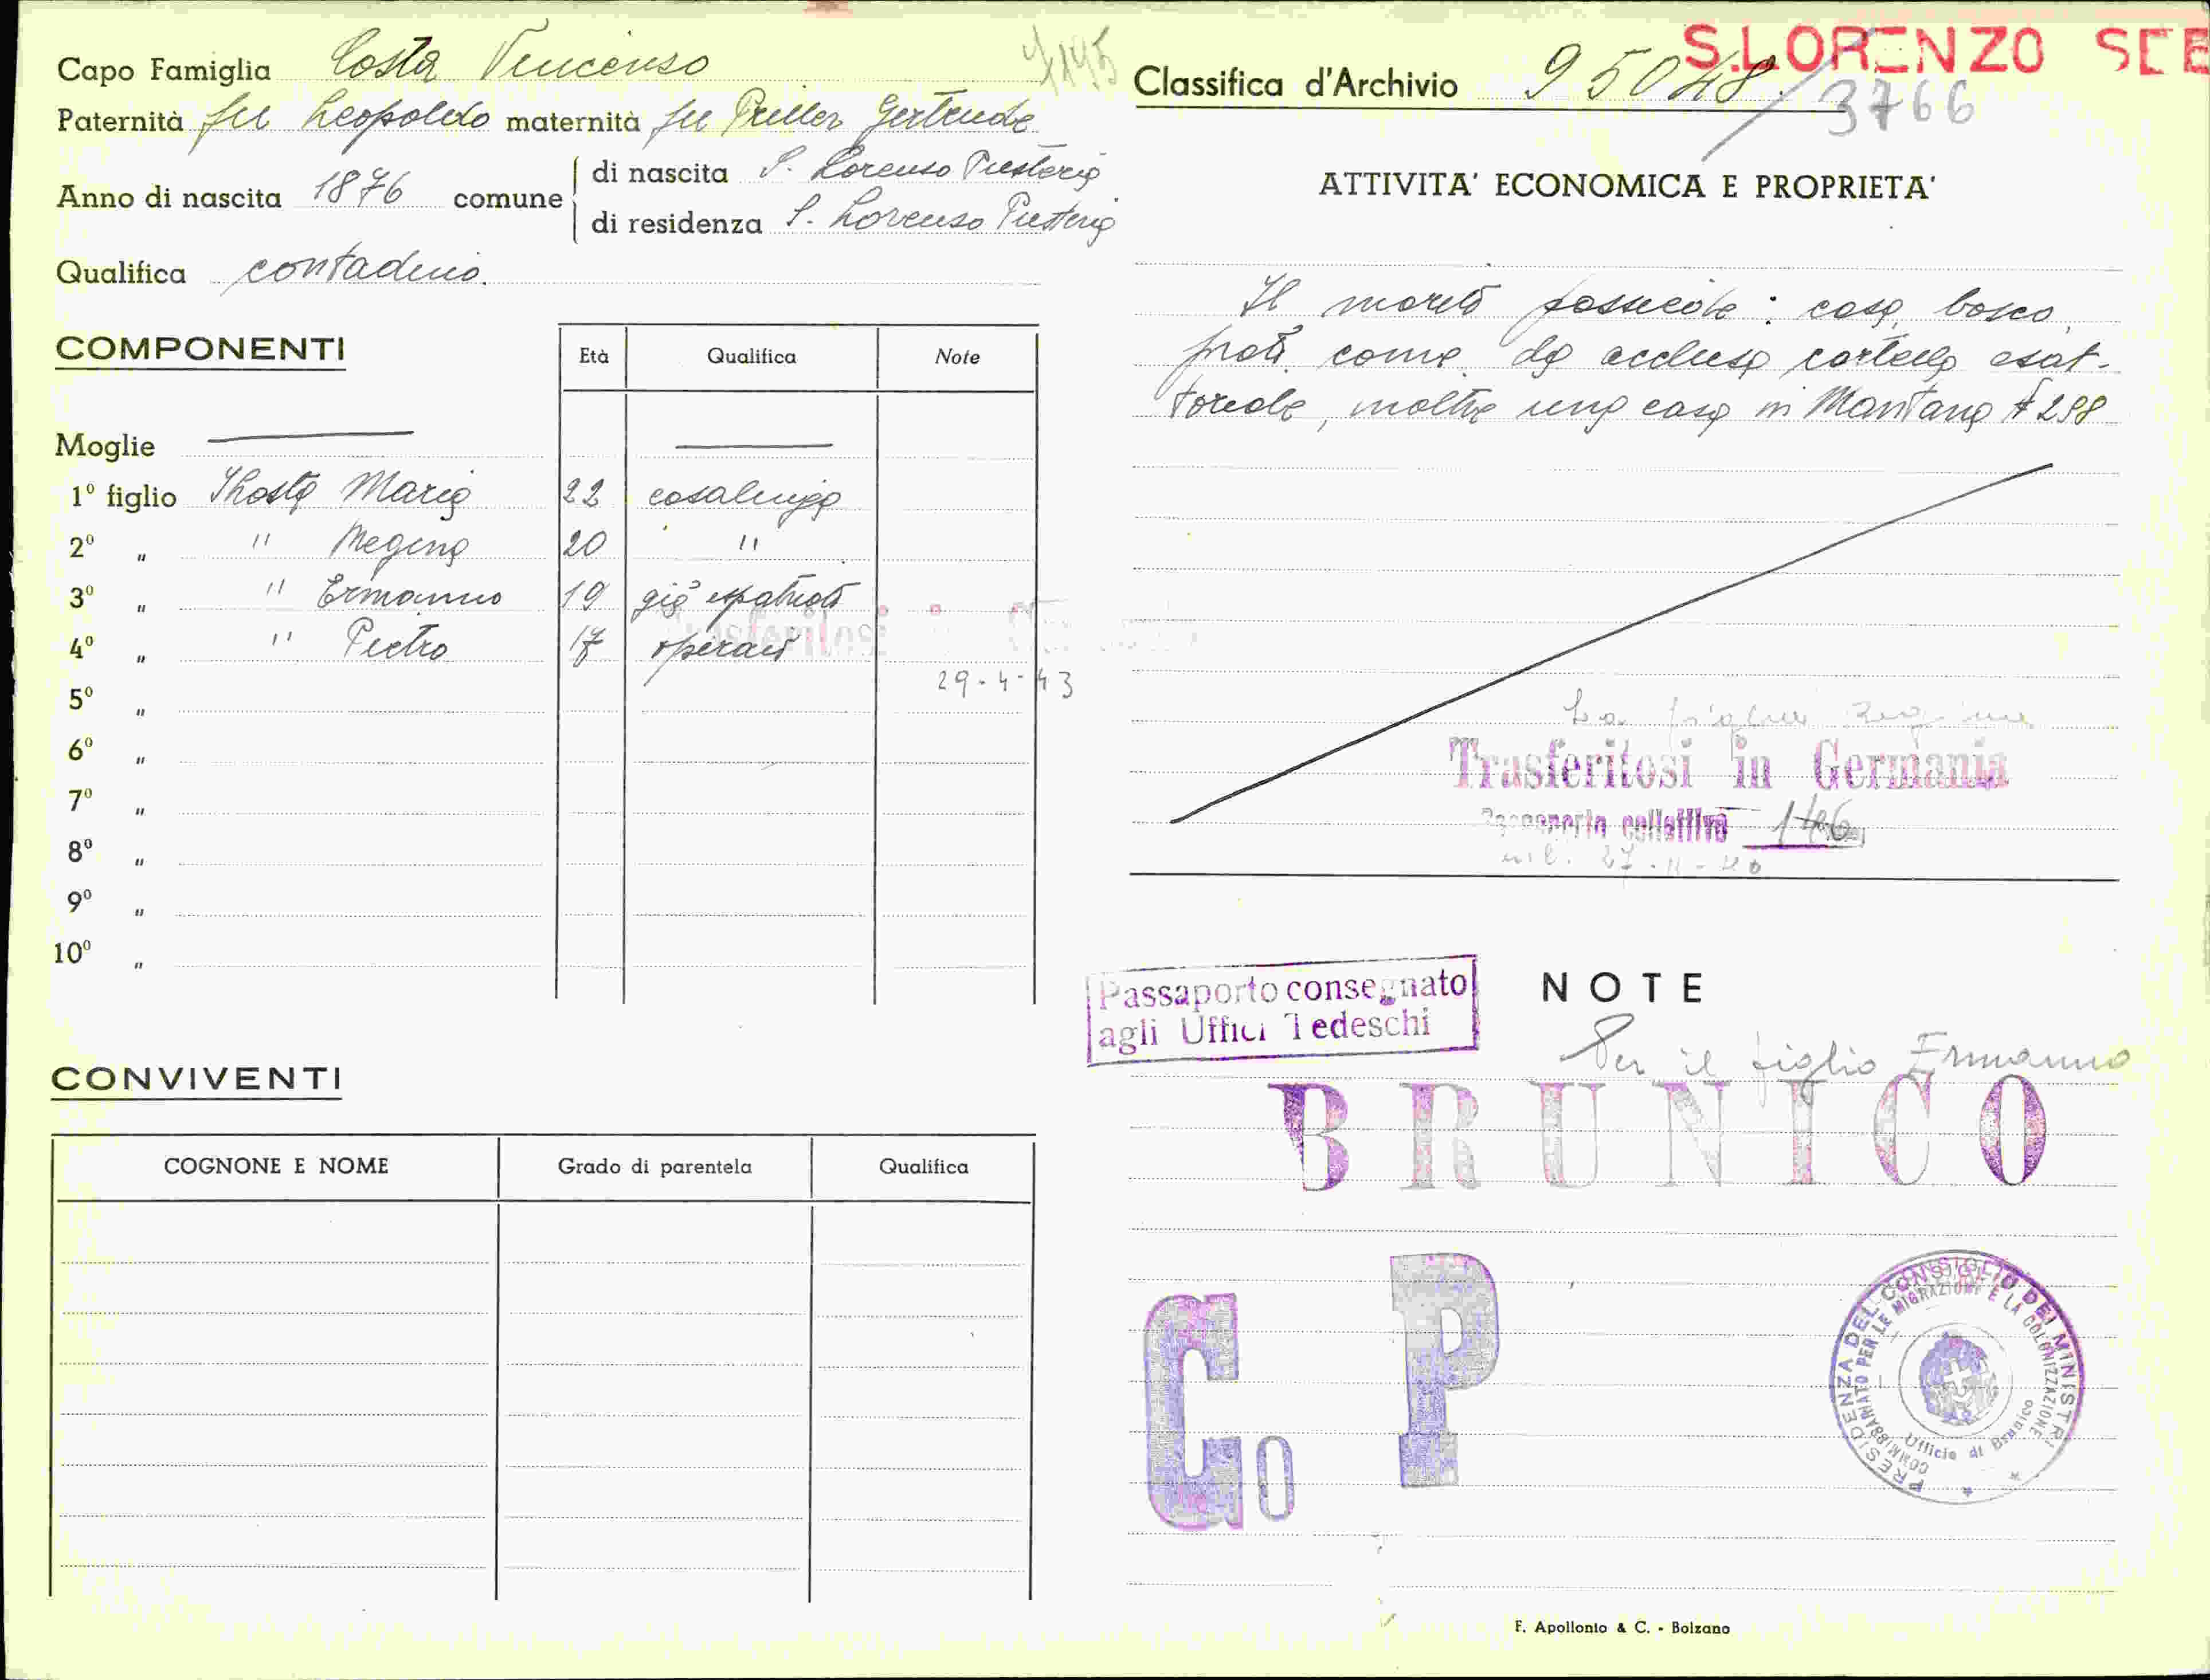 Capo Famiglia Costa Vincenso
Paternità fu Leopoldo maternità fu Priller Gertrude
Anno di nascita 1876 comune
di nascita S. Lorenso Pusteria
di residenza S. Lorenso Pusteria
Qualifica contadino.
COMPONENTI
Età Qualifica Note
Moglie
1º figlio Thosta Maria 22 casalinga
2º " " Regina 20 "
3º " " Ermanno 19 già espatriato
4º " " Pietro 17 operaio
Trasferitosi in
29-4-43
5º "
6º "
7º "
8º "
9º "
10º "
CONVIVENTI
COGNONE E NOME Grado di parentela Qualifica
S.LORENZO SEB
Classifica d'Archivio 95048/3766
ATTIVITA' ECONOMICA E PROPRIETA'
Il marito possiede: casa, bosco,
prati come da acclusa cartella esat-
toriale, inoltre una casa in Mantana 298
La figlia Regina
Trasferitosi in Germania
Passaporto collettivo 146
27-11-40
Passaporto consegnato
agli Uffici Tedeschi
NOTE
Per il figlio Ermanno
BRUNICO
Go P
PRESIDENZA DEL CONSIGLIO DEI MINISTRI
COMMISSARIATO PER LE MIGRAZIONI E LA COLONIZZAZIONE
Ufficio di Brunico
F. Apollonio & C. - Bolzano